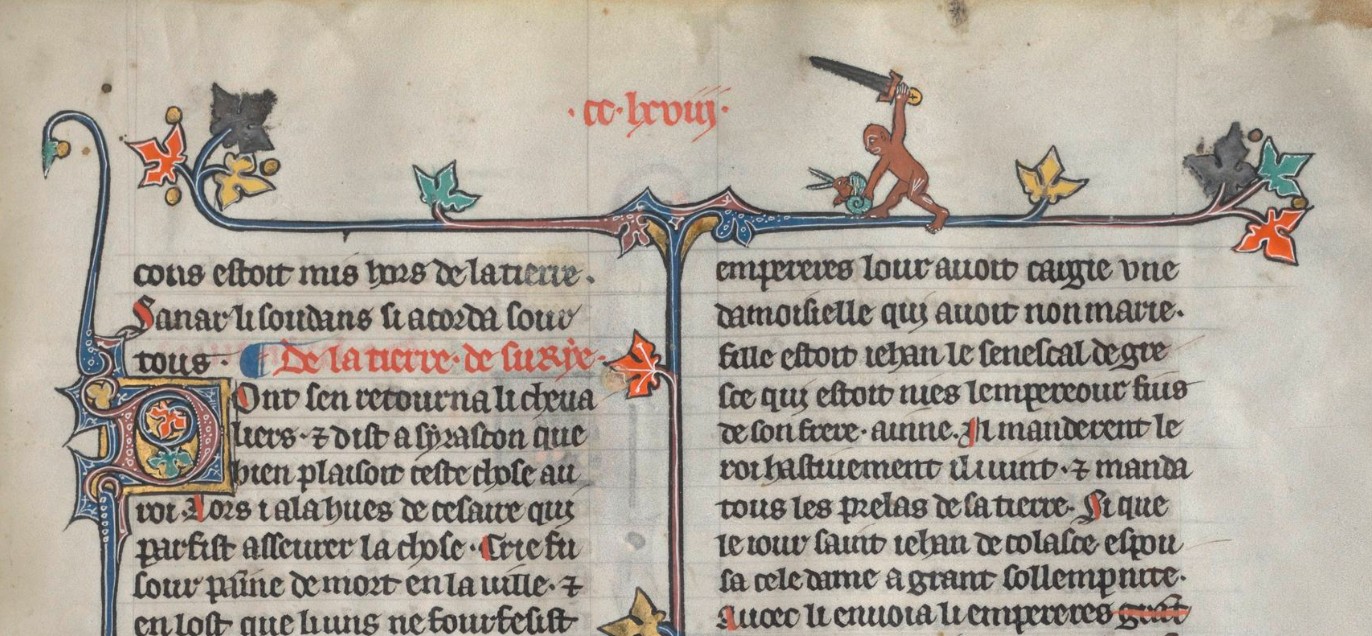 ·cc·lxviij·
cons estoit mis hors de la tierre.
Sanar li soudans si acorda sour
tous· De la tierre·de surye·
Dont sen retourna li cheua
liers·⁊ dist a syraston que
bien plaisoit ceste chose au
roi·Lors i ala hues de cesaire qui
parfist asseurer la chose·Crie fu
sour paine de mort en la uille·⁊
en lost que li uns ne fourfesist
empereres lour auoit cargie vne
damoisielle qui auoit non marie.
fille estoit iehan le senescal de gre
sce qui estoit nies lempereour fius
de son frere·ainne. Il manderent le
roi hastiuement il i uint·⁊ manda
tous les prelas de sa tierre. Si que
ie iour saint iehan de colasce espou
sa cele dame a grant sollempnite.
Auoec li enuoia li empereres grant